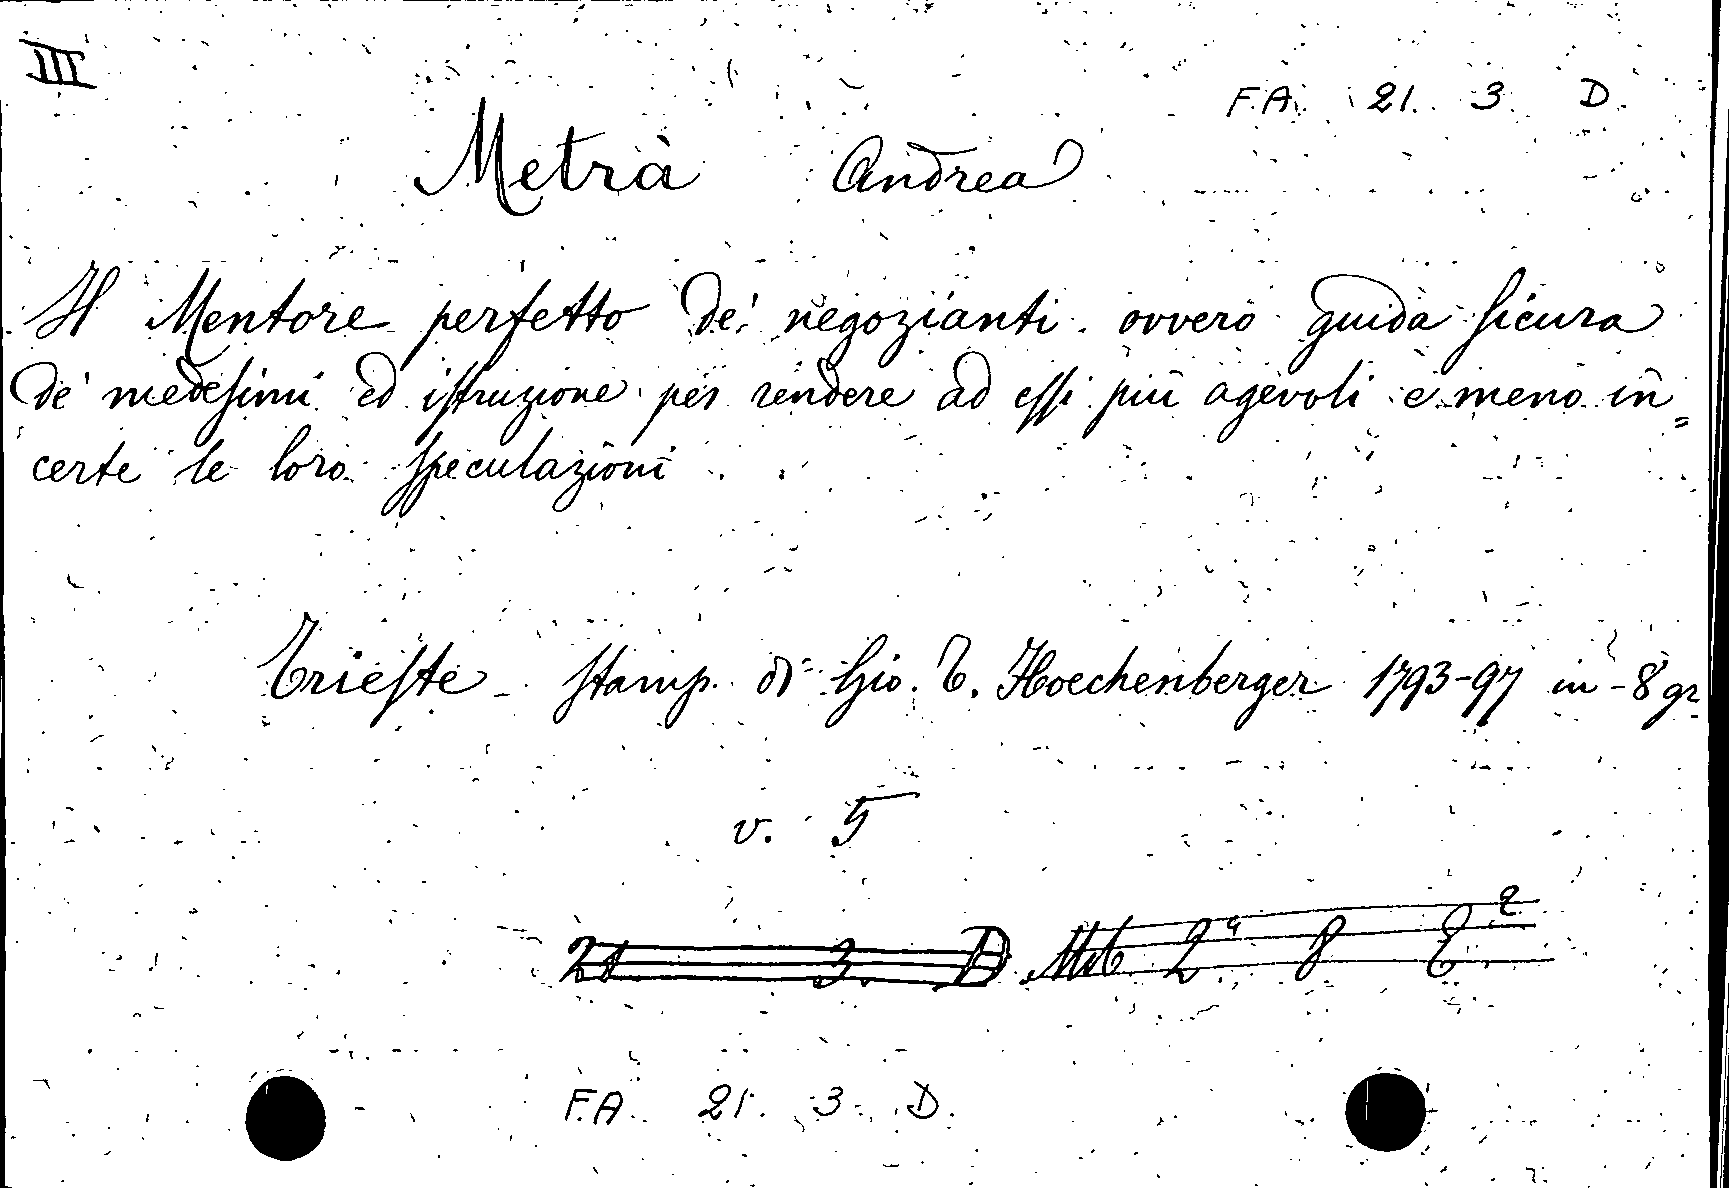 III
F.A. 21. 3. D.
Metrà Andrea
Il Mentore perfetto de' negozianti ovvero guida sicura
de' medesimi ed istruzione per rendere ad essi più agevoli e meno in=
certe le loro speculazioni
Trieste - stamp. di Gio. T. Hoechenberger 1793-97 in-8 gr.
v. 5
21. 3. D. 2ª 8
F.A. 21. 3. D.